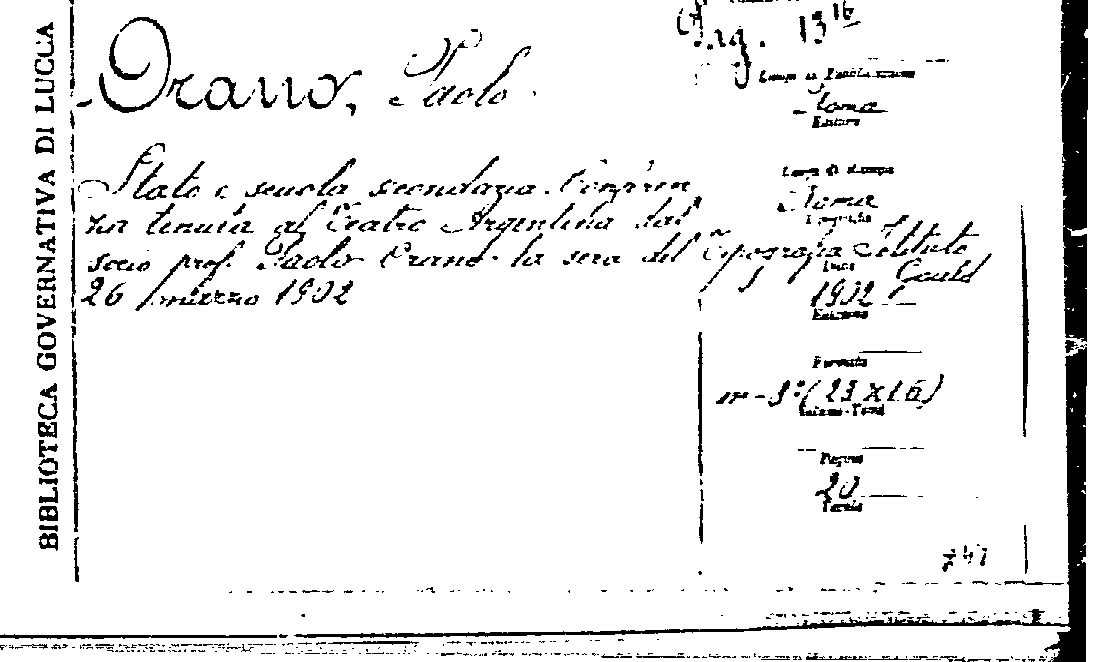 BIBLIOTECA GOVERNATIVA DI LUCCA
Orano, Paolo.
Stato e scuola secondaria. Conferen
za tenuta al Teatro Argentina dal
socio prof. Paolo Orano la sera del
26 marzo 1902
Luogo di Pubblicazione
Roma
Editore
Luogo di stampa
Roma
Tipografia
Tipografia Istituto
Gould
Data
1902
Formato
in-8° (23 X 16)
Pagine
20
Tavole